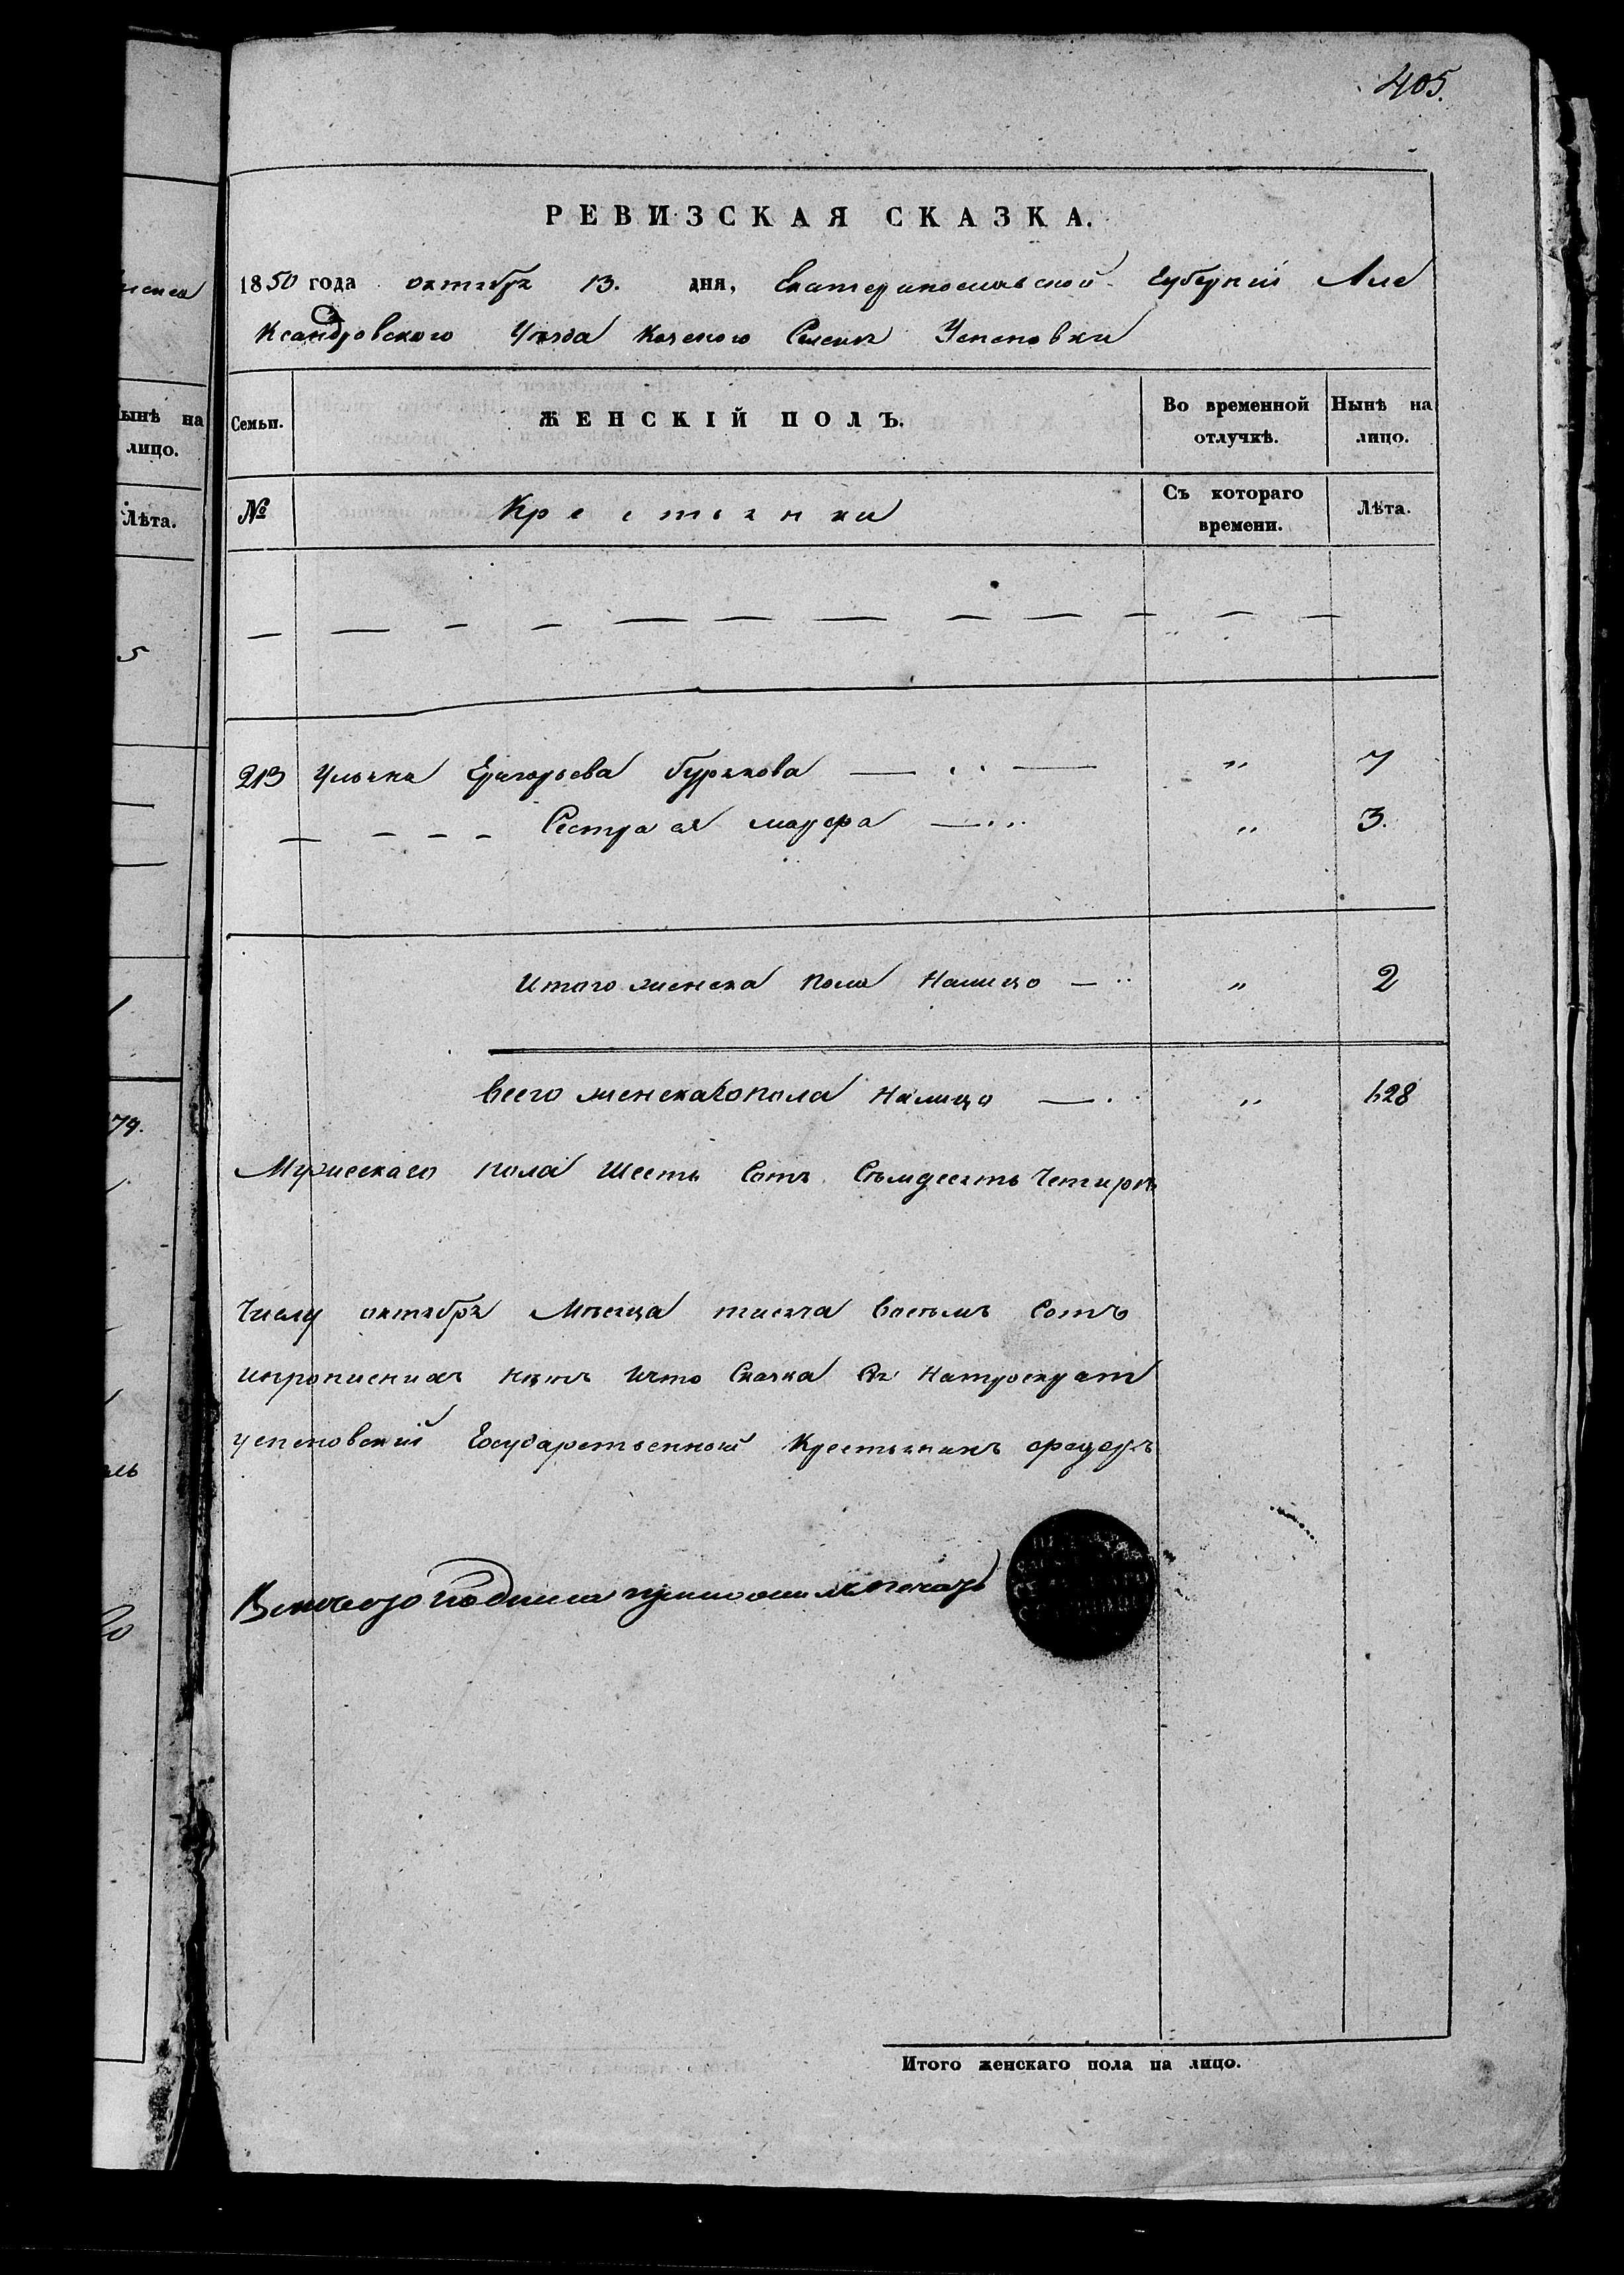 405.
РЕВИЗСКАЯ СКАЗКА.
1850 года октября 13. дня, Екатеринославской Губернии Але
ксандровского Уезда Казеного Селения Успеновки
Семьи.
ЖЕНСКІЙ ПОЛЪ.
Во временной отлучкѣ.
Нынѣ на лицо.
№
Крестьянки
Съ котораго времени.
Лѣта.
213 Ульяна Григорьева Бурякова — „ 7
Сестра ея Мавра — „ 3.
Итого женска пола Налицо — „ 2
Всего женскаго пола Налицо — „ 628
Мужескаго пола Шесть Сотъ Съмдесятъ Четирѣ
Числу октября Мѣсяца тисяча Восемъ Сотъ
Сказка
успеновский Государственной Крестьянинъ
печать
Итого женскаго пола на лицо.
ынѣ на
лицо.
Лѣта.
5
79.